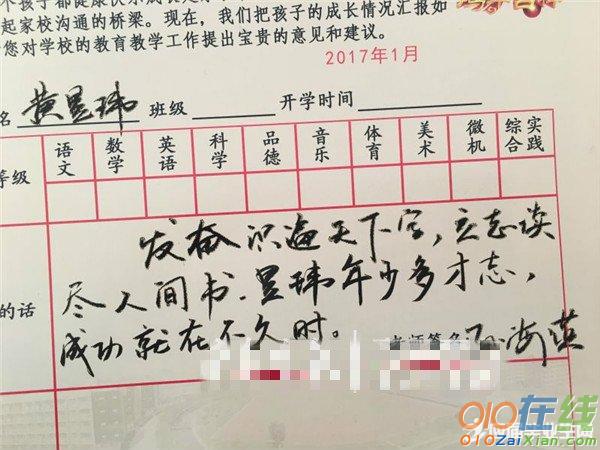 个孩子都健康快乐成长是
起家校沟通的桥梁。现在，我们把孩子的成长情况汇报如
您对学校的教育教学工作提出宝贵的意见和建议。
2017年1月
名 黄昱玮 班级 开学时间
等级 语文 数学 英语 科学 品德 音乐 体育 美术 微机 综合实践
发奋识遍天下字，立志读
的话 尽人间书。昱玮年少多才志，
成功就在不久时。
老师签名
海英
010在线
010ZaiXian.com